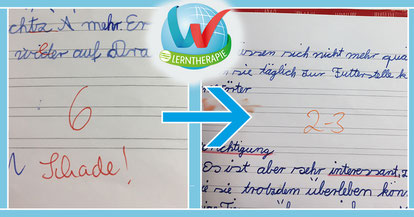 mehr. Er
wieder auf
6
Schade!
W
LERNTHERAPIE
issen sich nicht mehr qua
sie täglich zur Futterstelle k
2-3
ichtigung
Es ist aber sehr interessant,
sie trotzdem überleben kön